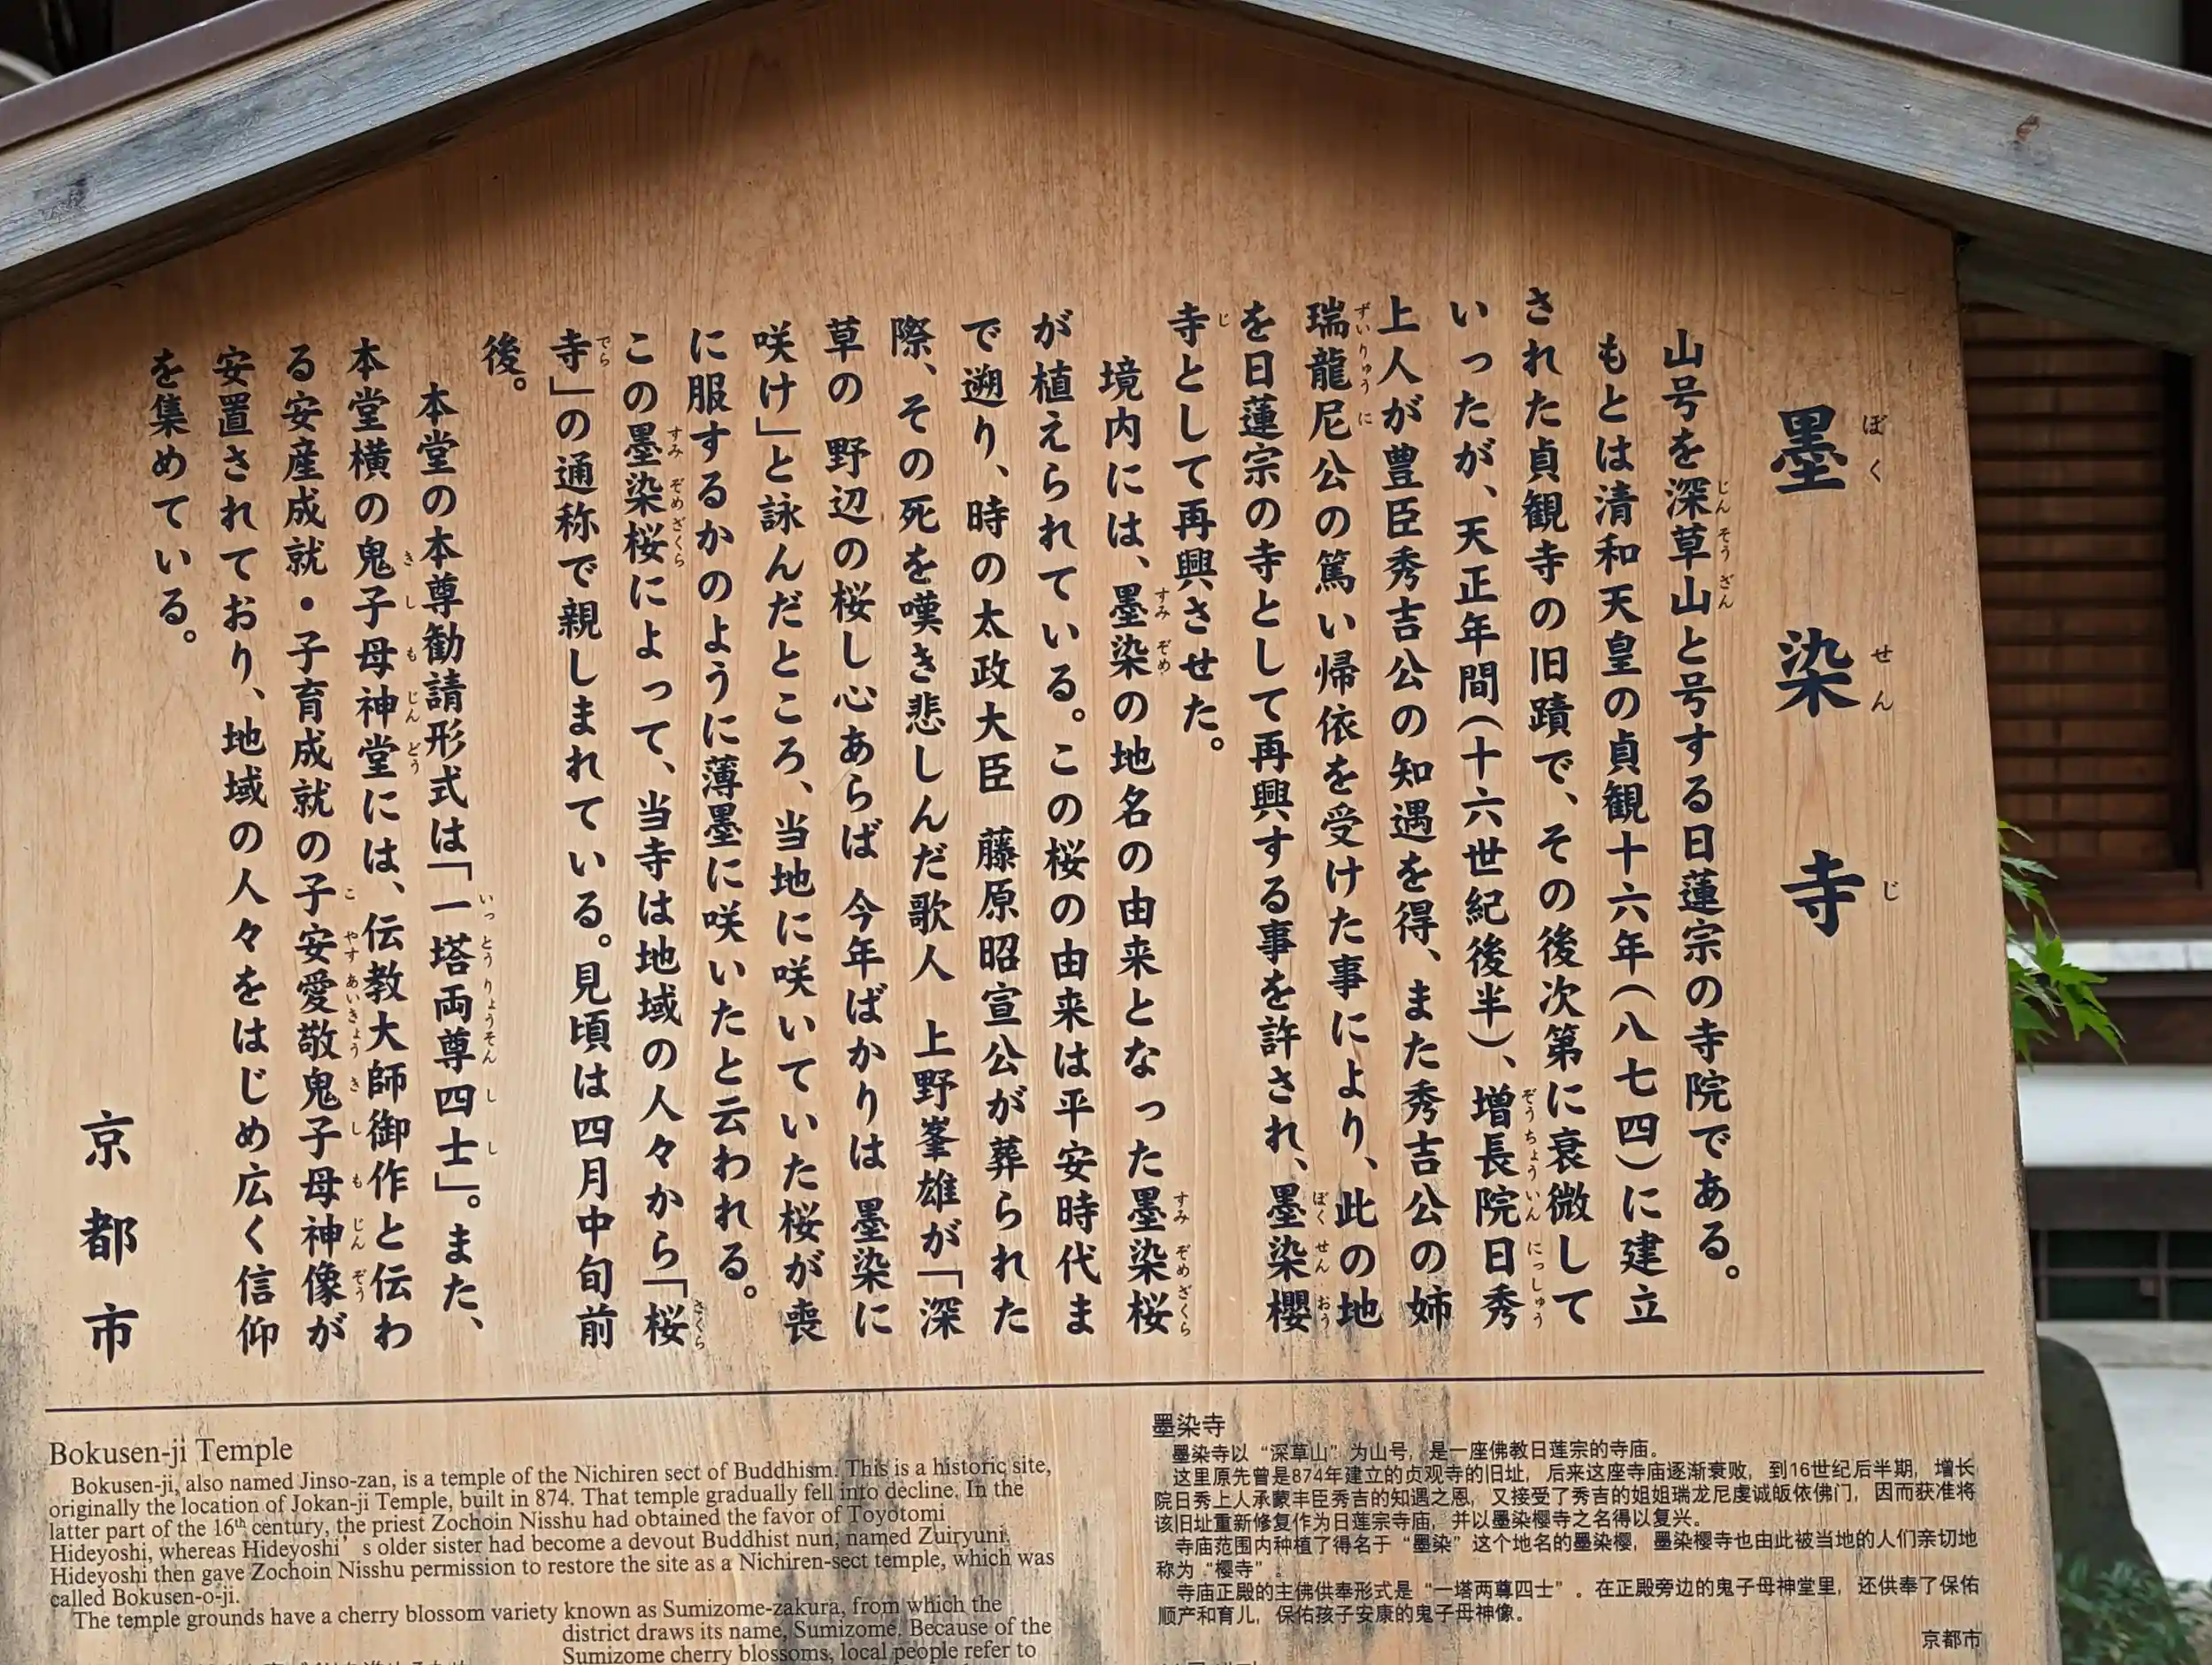 墨染寺
山号を深草山と号する日蓮宗の寺院である。
もとは清和天皇の貞観十六年(八七四)に建立
された貞観寺の旧蹟で、その後次第に衰微して
いったが、天正年間(十六世紀後半)、増長院日秀
上人が豊臣秀吉公の知遇を得、また秀吉公の姉
瑞龍尼公の篤い帰依を受けた事により、此の地
を日蓮宗の寺として再興する事を許され、墨染櫻
寺として再興させた。
境内には、墨染の地名の由来となった墨染桜
が植えられている。この桜の由来は平安時代ま
で遡り、時の太政大臣 藤原昭宣公が葬られた
際、その死を嘆き悲しんだ歌人 上野峯雄が「深
草の 野辺の桜し心あらば 今年ばかりは 墨染に
咲け」と詠んだところ、当地に咲いていた桜が喪
に服するかのように薄墨に咲いたと云われる。
この墨染桜によって、当寺は地域の人々から「桜
寺」の通称で親しまれている。見頃は四月中旬前
後。
本堂の本尊勧請形式は「一塔両尊四士」。また、
本堂横の鬼子母神堂には、伝教大師御作と伝わ
る安産成就・子育成就の子安愛敬鬼子母神像が
安置されており、地域の人々をはじめ広く信仰
を集めている。
京都市
Bokusen-ji Temple
Bokusen-ji, also named Jinso-zan, is a temple of the Nichiren sect of Buddhism. This is a historic site,
originally the location of Jokan-ji Temple, built in 874. That temple gradually fell into decline. In the
latter part of the 16th century, the priest Zochoin Nisshu had obtained the favor of Toyotomi
Hideyoshi, whereas Hideyoshi’s older sister had become a devout Buddhist nun, named Zuiryuni.
Hideyoshi then gave Zochoin Nisshu permission to restore the site as a Nichiren-sect temple, which was
called Bokusen-o-ji.
The temple grounds have a cherry blossom variety known as Sumizome-zakura, from which the
district draws its name, Sumizome. Because of the
Sumizome cherry blossoms, local people refer to
墨染寺
墨染寺以“深草山”为山号，是一座佛教日莲宗的寺庙。
这里原先曾是874年建立的贞观寺的旧址，后来这座寺庙逐渐衰败，到16世纪后半期，增长
院日秀上人承蒙丰臣秀吉的知遇之恩，又接受了秀吉的姐姐瑞龙尼虔诚皈依佛门，因而获准将
该旧址重新修复作为日莲宗寺庙，并以墨染樱寺之名得以复兴。
寺庙范围内种植了得名于“墨染”这个地名的墨染樱，墨染樱寺也由此被当地的人们亲切地
称为“樱寺”。
寺庙正殿的主佛供奉形式是“一塔两尊四士”。在正殿旁边的鬼子母神堂里，还供奉了保佑
顺产和育儿，保佑孩子安康的鬼子母神像。
京都市